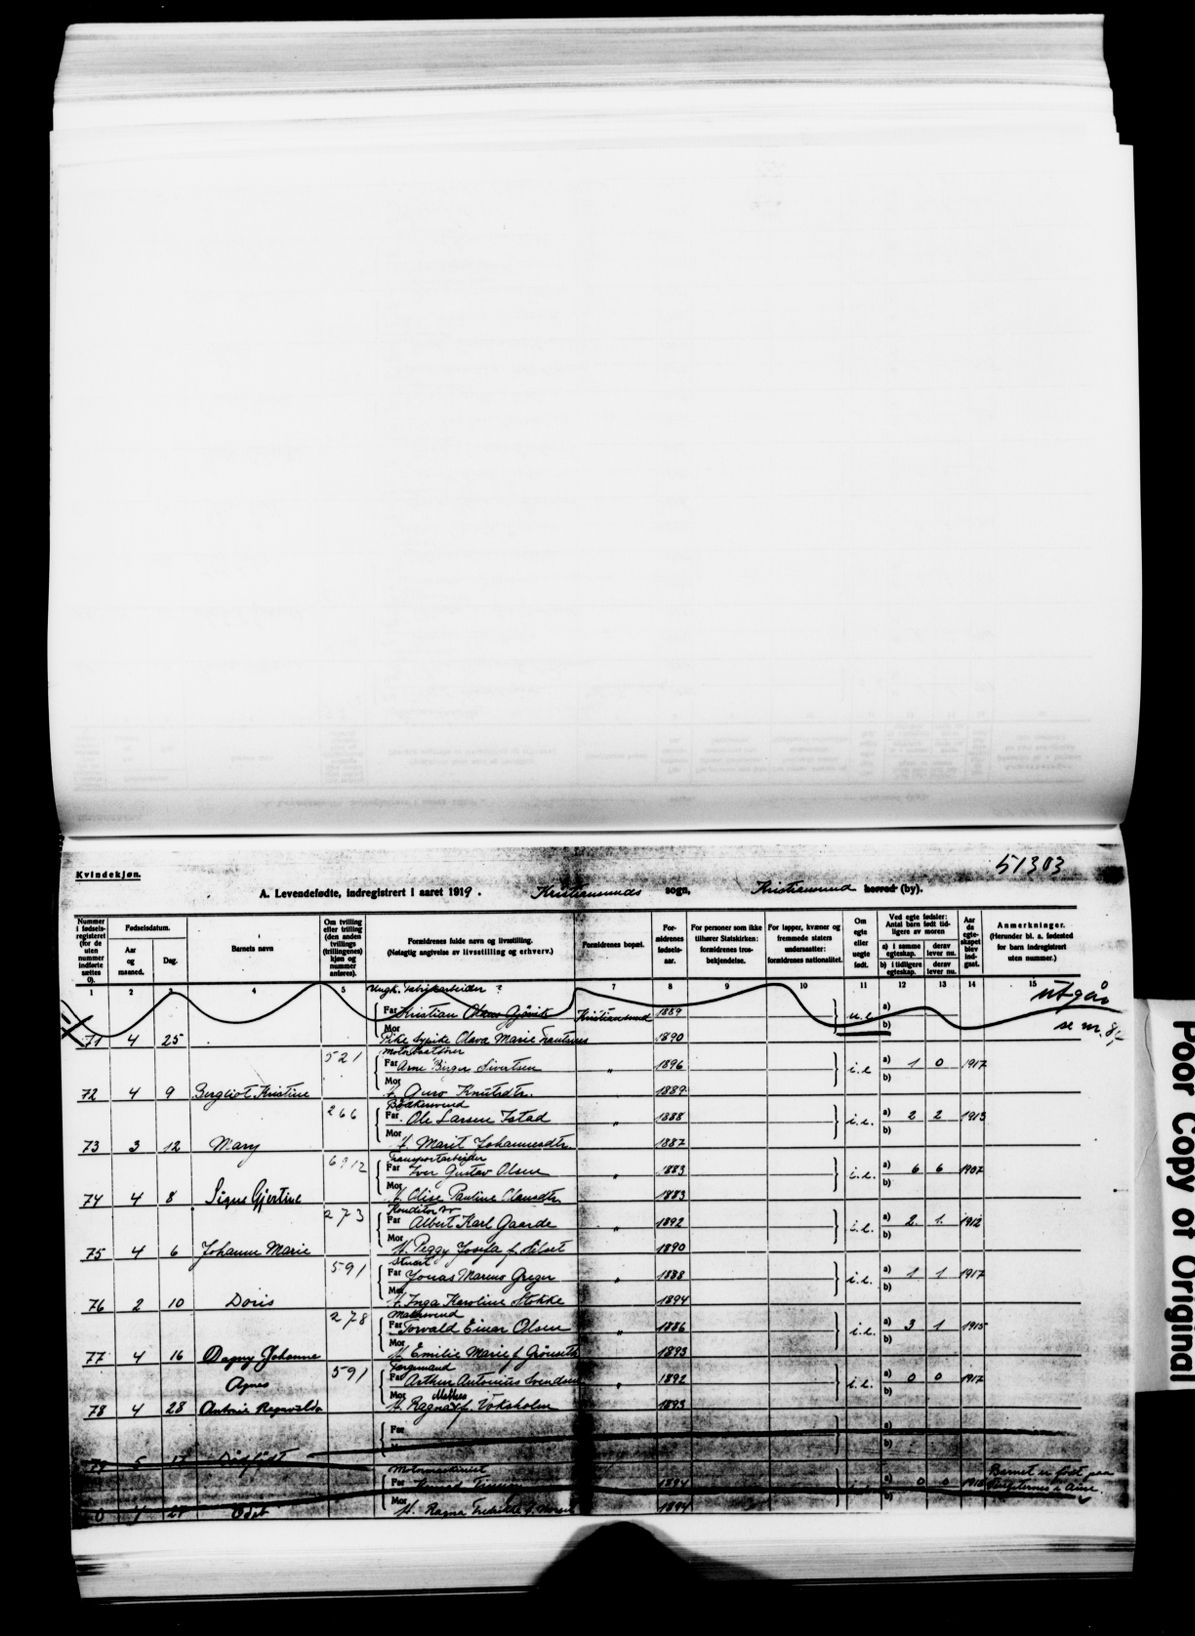 51303
Kvindekjøn.
A. Levendefødte, indregistrert i aaret 1919. Kristiansunds sogn, Kristiansund herred (by).
Nummer i fødsels-registeret (for de uten nummer indførte sættes 0).
Fødselsdatum.
Aar og maaned.
Dag.
Barnets navn
Om tvilling eller trilling (den anden tvillings (trillingenes) kjøn og nummer anføres).
Forældrenes fulde navn og livsstilling.
(Nøiagtig angivelse av livsstilling og erhverv.)
Forældrenes bopæl.
For-ældrenes fødsels-aar.
For personer som ikke tilhører Statskirken: forældrenes tros-bekjendelse.
For lapper, kvæner og fremmede staters undersaatter: forældrenes nationalitet.
Om egte eller uegte født.
Ved egte fødsler: Antal barn født tid-ligere av moren
a) i samme egteskap.
derav lever nu.
b) i tidligere egteskap.
derav lever nu.
Aar da egte-skapet blev ind-gaat.
Anmerkninger.
(Herunder bl. a. fødested for barn indregistrert uten nummer.)
1 2 3 4 5 6 7 8 9 10 11 12 13 14 15
Ungk. fabrikarbeider ?
utgår
Far Kristian Kristiansund 1889 u.e. a)
se nr. 81
Mor Pike Olava Marie 1890 b)
71 4 25
521
Far Arne Birger Sivertsen " 1896 i.e. a) 1 0 1917
Mor H. Guro Knutsdtr. 1889 b)
72 4 9 Bergliot Kristine
266
Bødkersvend
Far Ole Larsen Istad " 1888 i.e. a) 2 2 1913
Mor H. Marit Johannesdtr. 1887 b)
73 3 12 Mary
6912
Transportarbeider
Far Iver Gustav Olsen " 1883 i.e. a) 6 6 1907
Mor H. Olise Pauline Olausdtr. 1883 b)
74 4 8 Signe Gjertine
273
Konditor
Far Albert Karl Gaarde " 1892 i.e. a) 2. 1. 1912
Mor H. Peggy Josefa f. 1890 b)
75 4 6 Johanne Marie
591
Stuert
Far Jonas Marius Greger " 1888 i.e. a) 1 1 1917
Mor H. Inga Karoline Stokke 1894 b)
76 2 10 Doris
278
Malersvend
Far Torvald Einar Olsen " 1886 i.e. a) 3 1 1915
Mor H. Emilie Marie f. 1893 b)
77 4 16 Dagny Johanne
591
Far Arthur Antonius Svendsen " 1892 i.e. a) 0 0 1917
Agnes
Mor H. Ragna Mathea f. Voksholm 1893 b)
78 4 28 Antonie Ragnvalda
Far a)
Mor b)
79 5 17 Dødfødt
Motormaskinist
Far 1894 a) 0 0 1918 Barnet er født paa
i Aure.
Mor H. Ragna Fredrikke f. 1894 b)
0 27 Odst
Poor Copy of Original